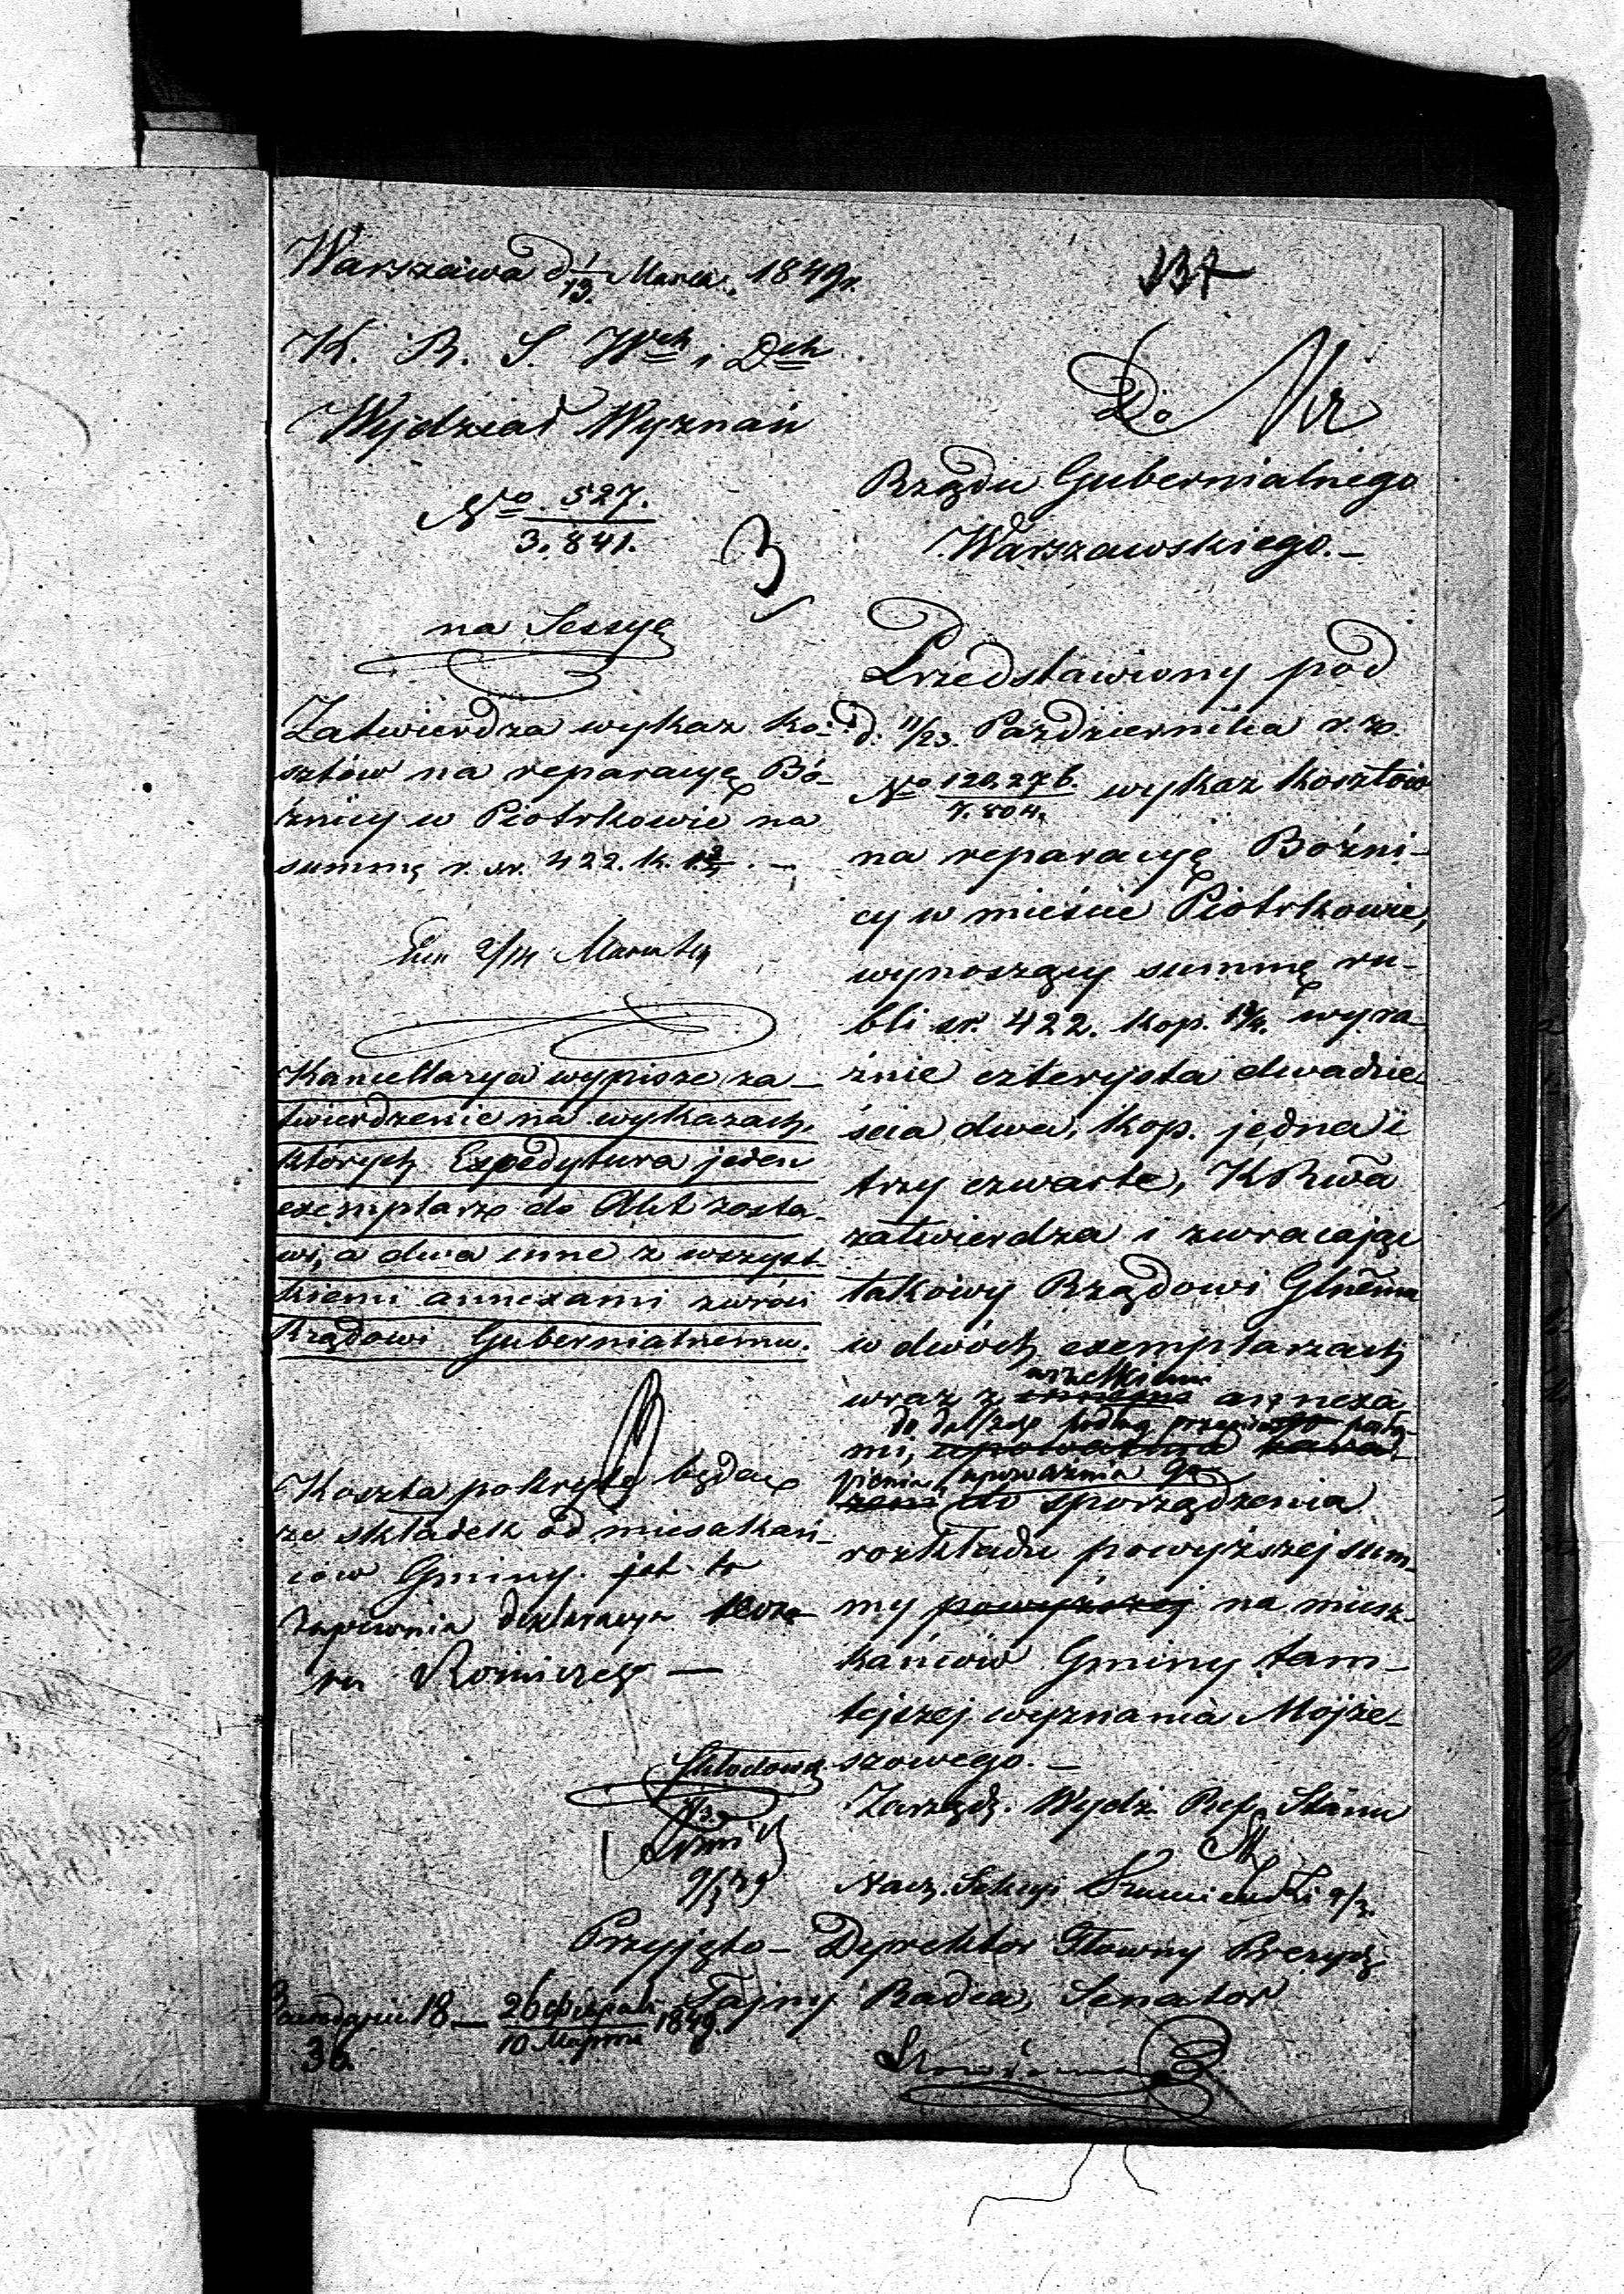 Warszawa d 1/13 Marca 1849 r.
K. R. S. Wch i Dch
Wydział Wyznań
No. 527.
3.841.
3
na Sessyę
Zatwierdza wykaz ko-
sztów na reparacyę Bó-
żnicy w Piotrkowie na
summę r. sr. 422. k. 1 3/4. —
2/14 Marca
Kancellarya wypisze za-
twierdzenie na wykazach,
których Expedytura jeden
exemplarz do Akt zosta-
wi, a dwa inne z wszyst-
kiemi annexami zwróci
Rządowi Gubernialnemu.
Koszta pokryte będą
ze składek od mieszkań-
ców Gminy. jak to
zapewnia deklaracya Dozo-
ru
9/3 49
137
Do
Rządu Gubernialnego
Warszawskiego. —
Przedstawiony pod
d. 11/23. Października r. z.
No 120,276.
7.804.
wykaz kosztów
na reparacyę Bóżni-
cy w mieście Piotrkowie,
wynoszący summę ru-
bli sr. 422. kop. 1 3/4. wyra-
źnie czterysta dwadzie-
ścia dwa, kop. jedna i
trzy czwarte, KRwa
zatwierdza i zwracając
takowy Rządowi Glnemu
w dwóch exemplarzach
wszelkiemi
wraz z annexa-
do dalszego podług przepisów postą-
mi,
pienia, upoważnia go
do sporządzenia
rozkładu powyższej sum-
my powyższej na miesz-
kańców Gminy tam-
tejszej wyznania Mojże-
szowego. —
Zarządz. Wydz. Ref. Stanu
Nacz. Sekcyi 9/3.
Przyjęto — Dyrektor Główny Prezyd.
Tajny Radca, Senator
18 — 26 Февраля
10 Марта
1849.
30.